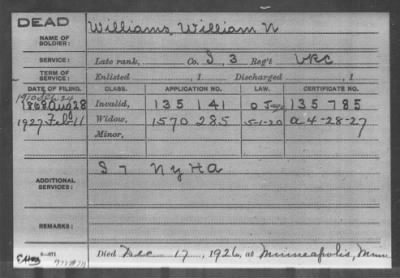 DEAD
NAME OF SOLDIER: Williams, William N
SERVICE: Late rank, Co. I, 3 Reg't VRC
TERM OF SERVICE: Enlisted , 1 Discharged , 1
DATE OF FILING. CLASS. APPLICATION NO. LAW. CERTIFICATE NO.
1868 Aug 28 Invalid, 135 141 135 785
1927 Feb 11 Widow, 1570 285 5-1-20 a 4-28-27
Minor,
ADDITIONAL SERVICES: I 7 NY HA
REMARKS:
Died Dec 17, 1926, at Minneapolis, Minn